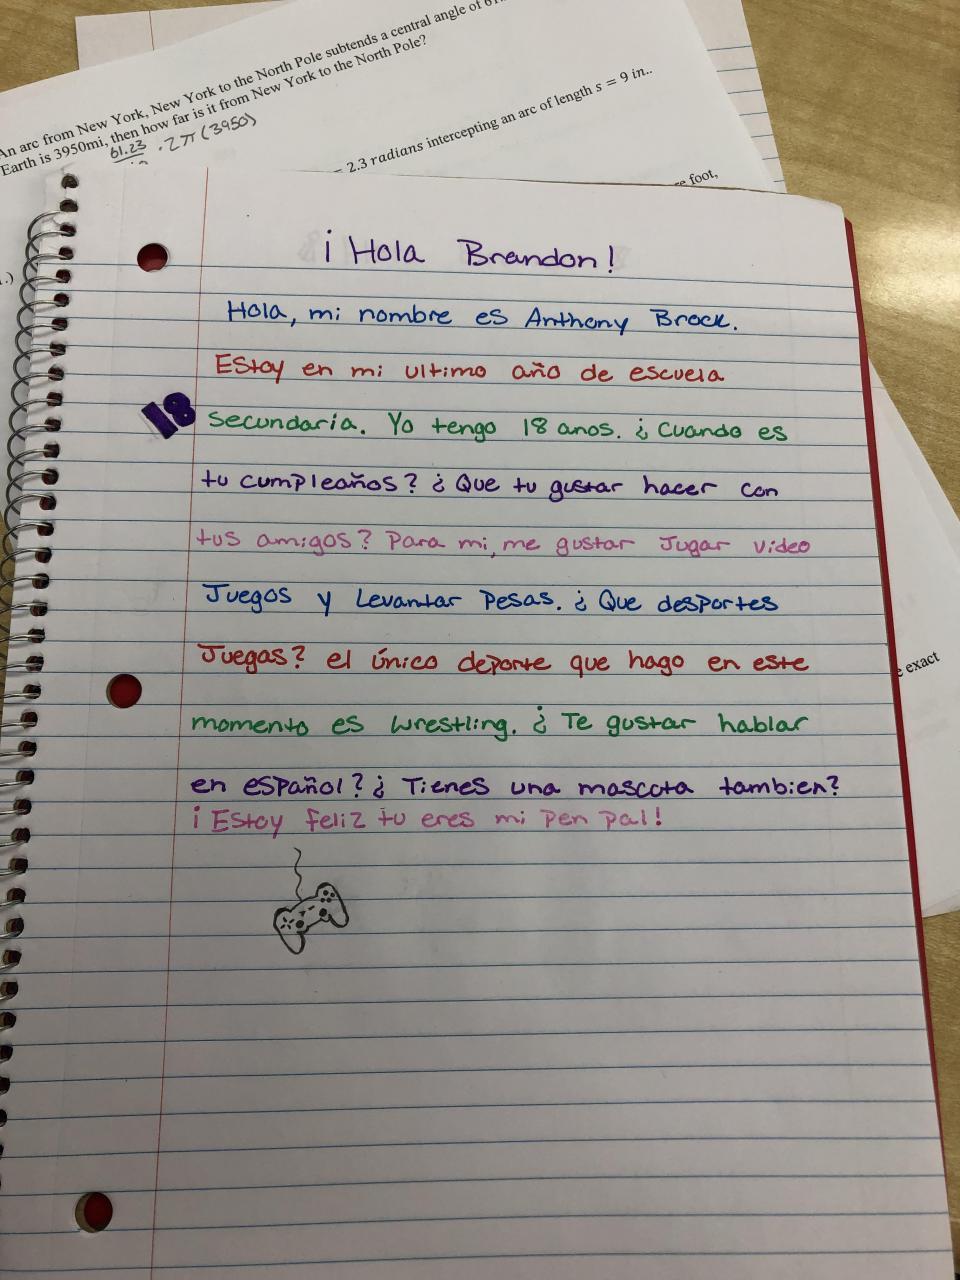 An arc from New York, New York to the North Pole subtends a central angle of
Earth is 3950mi, then how far is it from New York to the North Pole?
61.23 · 2π (3950)
2.3 radians intercepting an arc of length s = 9 in..
foot,
.)
¡Hola Brandon!
Hola, mi nombre es Anthony Brock.
Estoy en mi ultimo año de escuela
18
secundaria. Yo tengo 18 anos. ¿ Cuando es
tu cumpleaños? ¿ Que tu gustar hacer con
tus amigos? Para mi, me gustar Jugar video
Juegos y Levantar Pesas. ¿ Que desportes
Juegas? el único deporte que hago en este
momento es wrestling. ¿ Te gustar hablar
en español? ¿ Tienes una mascota tambien?
¡ Estoy feliz tu eres mi pen pal!
exact